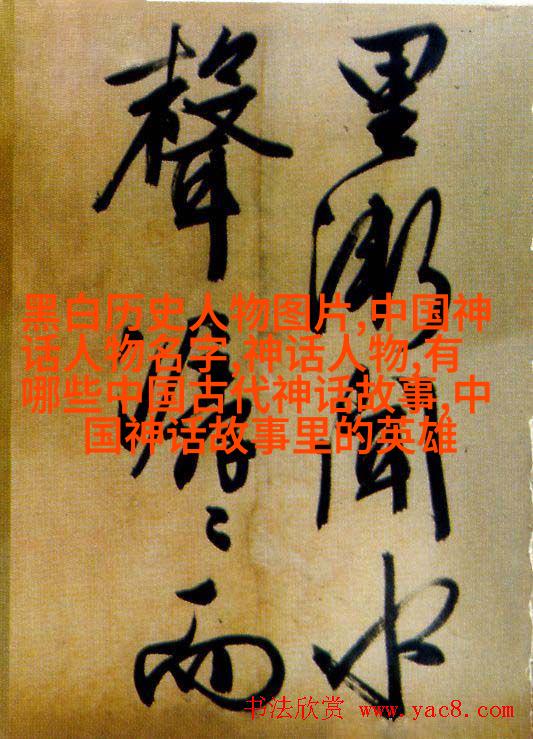 里漸聞水
聲潺〻而
黑白历史人物图片,中国神
话人物名字,神话人物,有
哪些中国古代神话故事,中
国神话故事里的英雄
书法欣赏 www.yac8.com